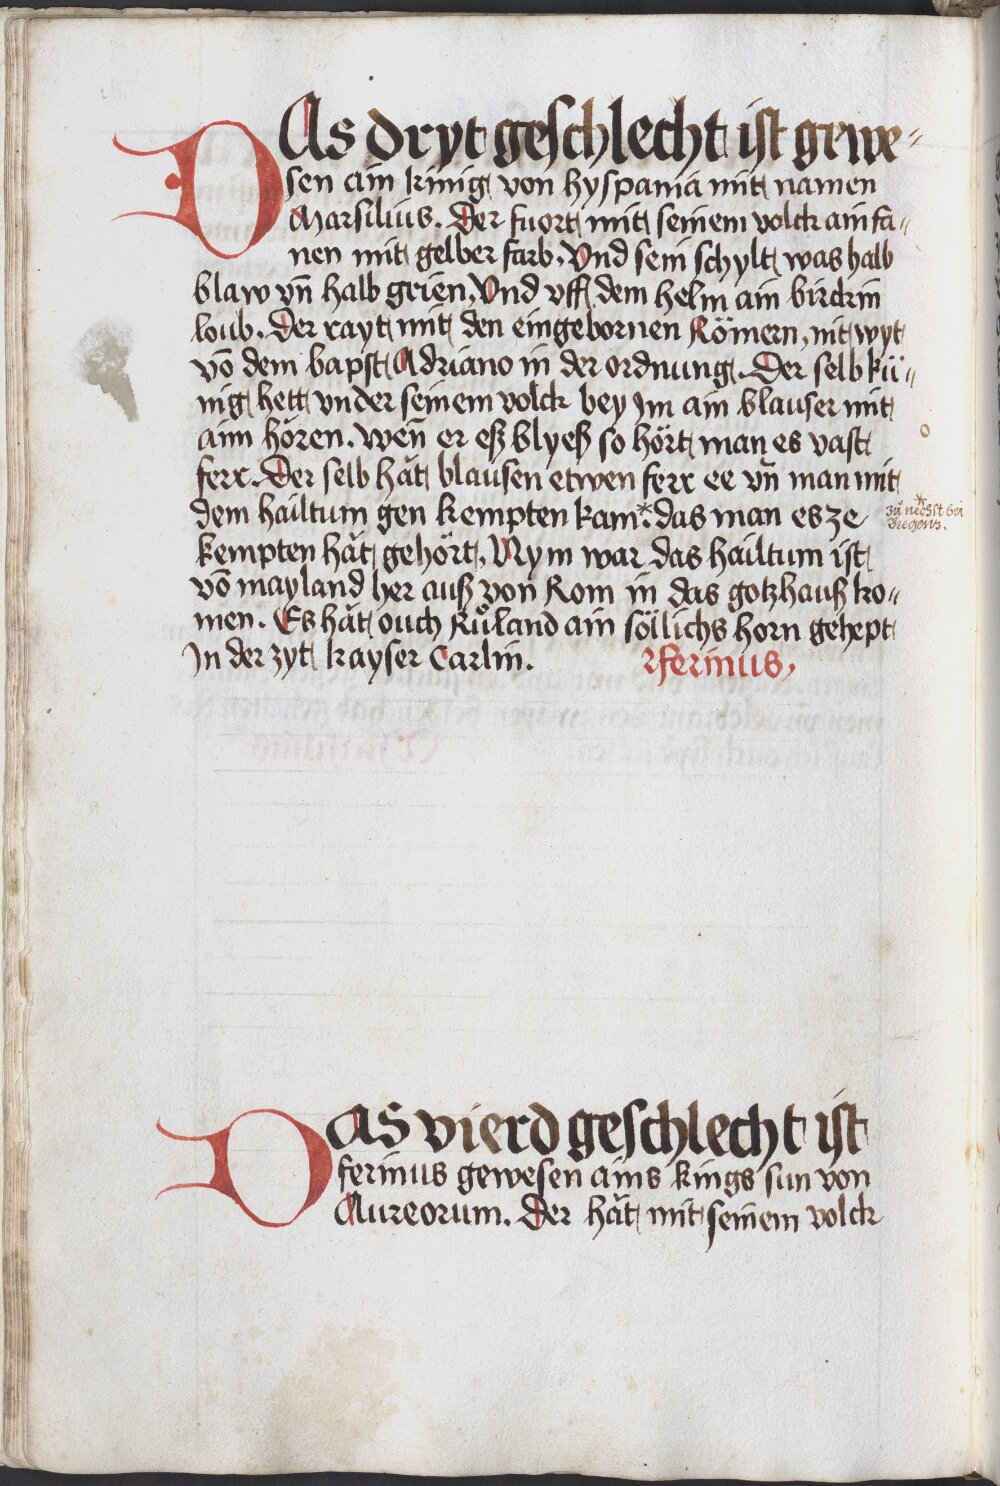 DAs dryt geschlecht ist gewe⸗
sen ain kinig von hyspania mit namen
Marsilius. Der fuort mit seinem volck ain fa⸗
nen mit gelber farb. Vnd sein schylt was halb
blaw vn̄ halb grien. Vnd vff dem helm ain birckin
loub. Der rayt mit den eingebornen Römern, nit wyt
vō dem bapst Adriano in der ordnung. Der selb kü⸗
nig hett vnder seinem volck bey Im ain blauser mit
aim hören. Wen̄ er eß blyeß so hört man es vast
ferr. Der selb hăt blausen etwen ferr ee vn̄ man mit
dem hailtum gen kempten kam.* das man es ze
* zů nechst bei
Bregentz.
kempten hăt gehört. Nym war das hailtum ist
vō mayland her auß von Rom in das gotzhauß ko⸗
men. Es hăt ouch Růland ain söllichs horn gehept
In der zyt kayser Carlin. ferinus,
DAs vierd geschlecht ist
ferinus gewesen ains kings sun von
Aureorum. Der hăt mit seinem volck